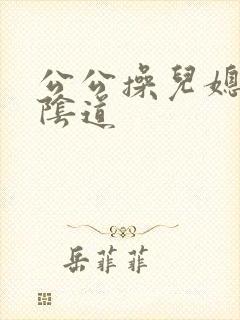 公公操兒媳
陰道
岳菲菲